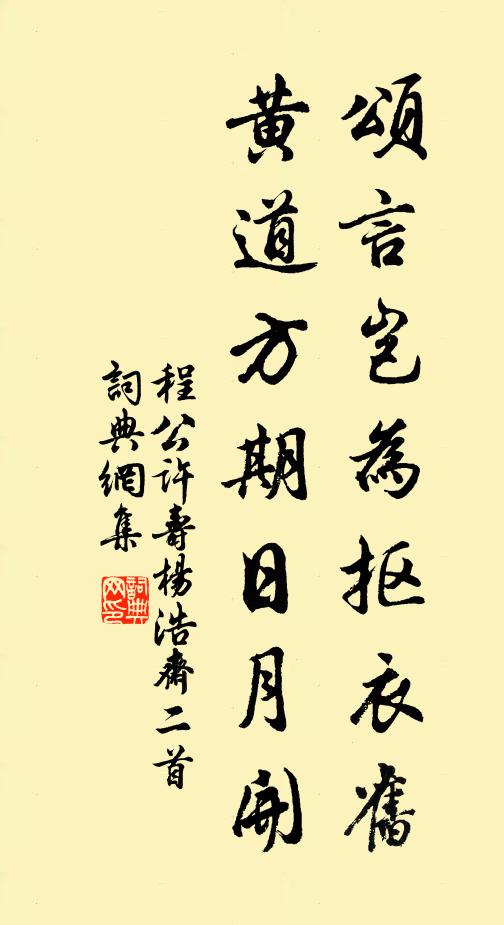 頌言岂為抠衣舊
黃道方期日月開
程公許壽楊浩齋二首
詞典網集
詞典网印